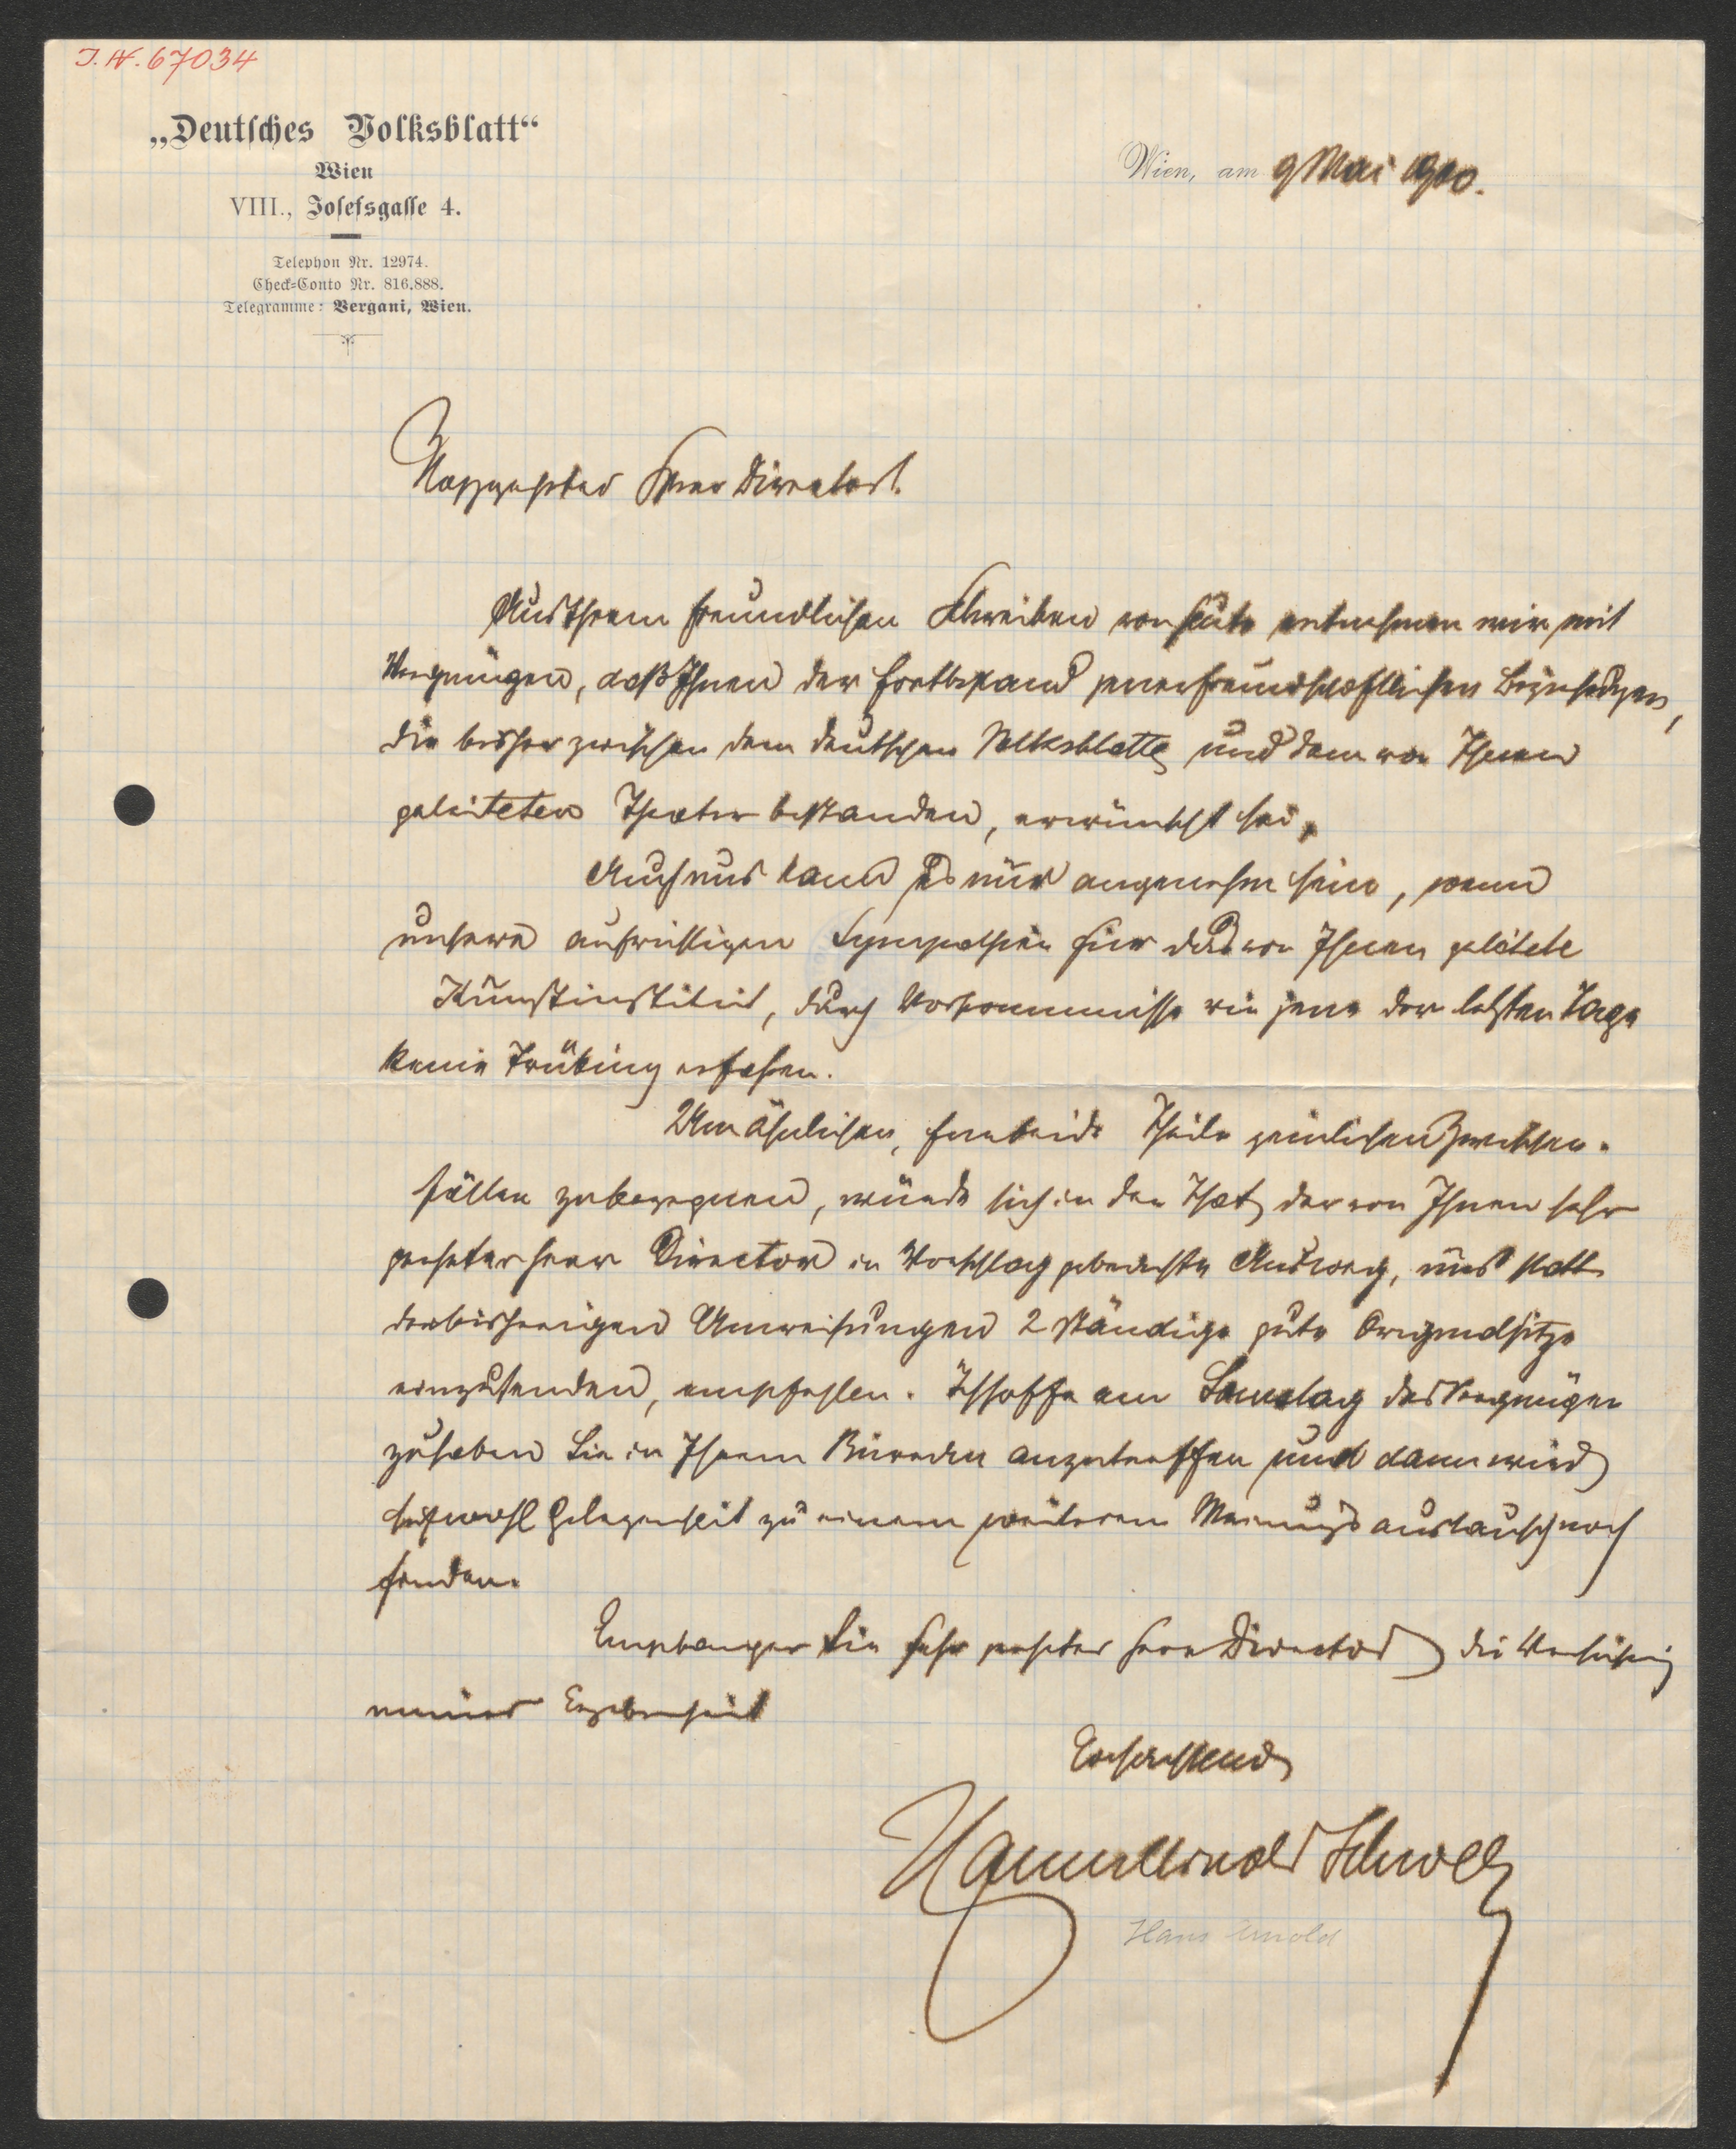 I.N. 67034
„Deutsches Volksblatt“
Wien
VIII., Josefsgasse 4.
Telephon Nr. 12974.
Check-Conto Nr. 816.888.
Telegramme: Vergani, Wien.
Wien, am 9 Mai 1900.
Hochgeehrter Herr Director!
Aus Ihrem freundlichen Schreiben von heute entnehmen wir mit
Vergnügen, daß Ihnen der Fortbestand jener freundschaftlichen Beziehungen,
die bisher zwischen dem deutschen Volksblatte und dem von Ihnen
geleiteten Theater bestanden, erwünscht sei.
Auch uns kann es nur angenehm sein, wenn
unsere aufrichtigen Sympathien für das von Ihnen geleitete
Kunstinstitut, durch Vorkommnisse wie jene der letzten Tage
keine Trübung erfahren.
Um ähnlichen, für beide Theile peinlichen Zwischen-
fällen zu begegnen, würde sich in der That der von Ihnen sehr
geehrter Herr Director in Vorschlag gebrachte Ausweg, uns statt
der bisherigen Anweisungen 2 ständige gute Originalsitze
einzusenden, empfehlen. Ich hoffe am Samstag das Vergnügen
zu haben Sie in Ihrem Bureau anzutreffen und dann wird
sich wohl Gelegenheit zu einem weiteren Meinungsaustausch noch
finden.
Empfangen Sie sehr geehrter Herr Director die Versicherung
meiner Ergebenheit
Hochachtend
Hanns Arnold Schwer
Hans Arnold